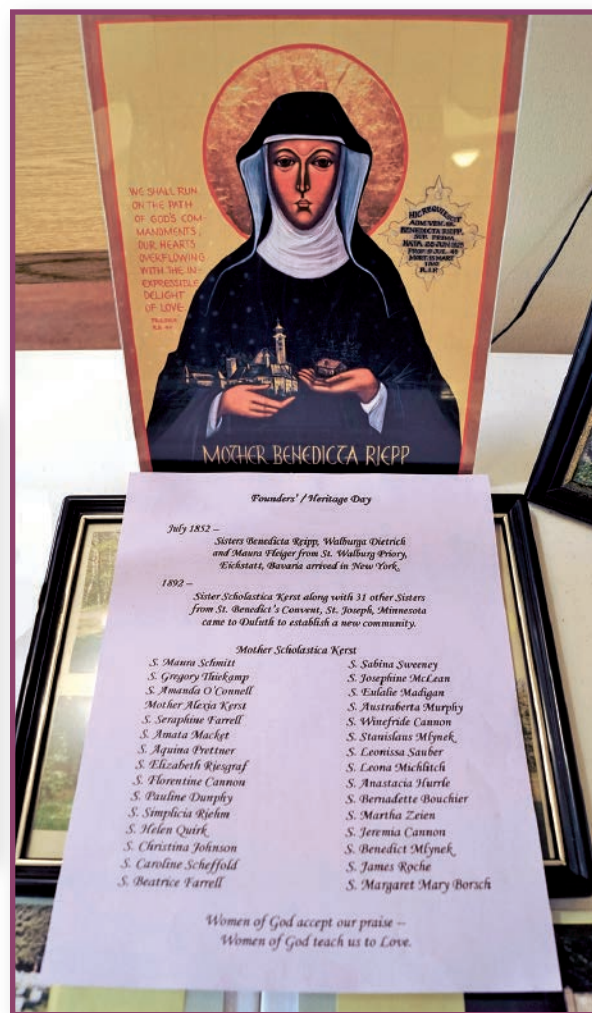 WE SHALL RUN
ON THE PATH
OF GOD'S COM-
MANDMENTS,
OUR HEARTS
OVERFLOWING
WITH THE IN-
EXPRESSIBLE
DELIGHT
OF LOVE
HIC REQUIESCIT
BENEDICTA RIEPP
R.I.P.
MOTHER BENEDICTA RIEPP
Founders' / Heritage Day
July 1852 –
Sisters Benedicta Reipp, Walburga Dietrich
and Maura Fleiger from St. Walburg Priory,
Eichstatt, Bavaria arrived in New York.
1892 –
Sister Scholastica Kerst along with 31 other Sisters
from St. Benedict's Convent, St. Joseph, Minnesota
came to Duluth to establish a new community.
Mother Scholastica Kerst
S. Maura Schmitt
S. Gregory Thiekamp
S. Amanda O'Connell
Mother Alexia Kerst
S. Seraphine Farrell
S. Amata Macket
S. Aquina Prettner
S. Elizabeth Riesgraf
S. Florentine Cannon
S. Pauline Dunphy
S. Simplicia Riehm
S. Helen Quirk
S. Christina Johnson
S. Caroline Scheffold
S. Beatrice Farrell
S. Sabina Sweeney
S. Josephine McLean
S. Eulalie Madigan
S. Austraberta Murphy
S. Winefride Cannon
S. Stanislaus Mlynek
S. Leonissa Sauber
S. Leona Michlitch
S. Anastacia Hurrle
S. Bernadette Bouchier
S. Martha Zeien
S. Jeremia Cannon
S. Benedict Mlynek
S. James Roche
S. Margaret Mary Borsch
Women of God accept our praise –
Women of God teach us to Love.